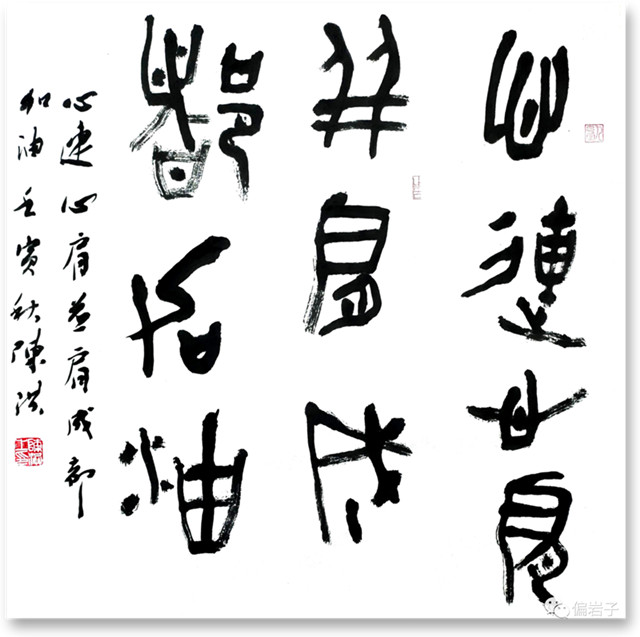 心連心肩
并肩成
都加油
心連心肩並肩成都
加油壬寅秋陳洪
偏岩子